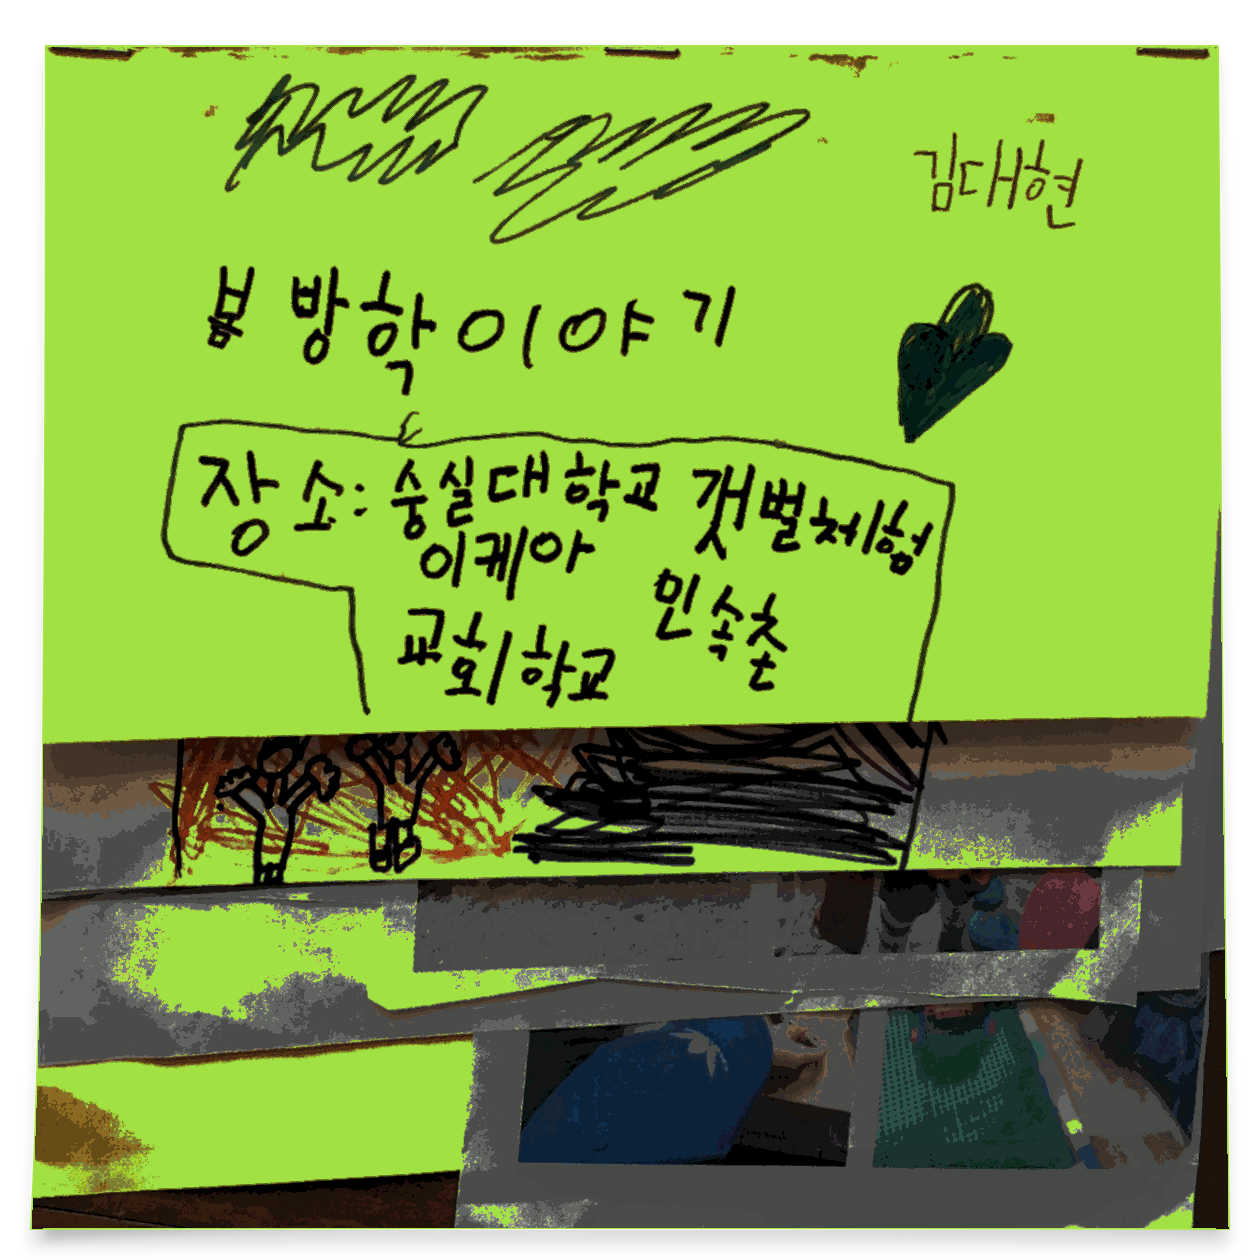 김대현
봄 방학 이야기
장소: 숭실대학교 갯벌체험
이케아 민속촌
교회학교